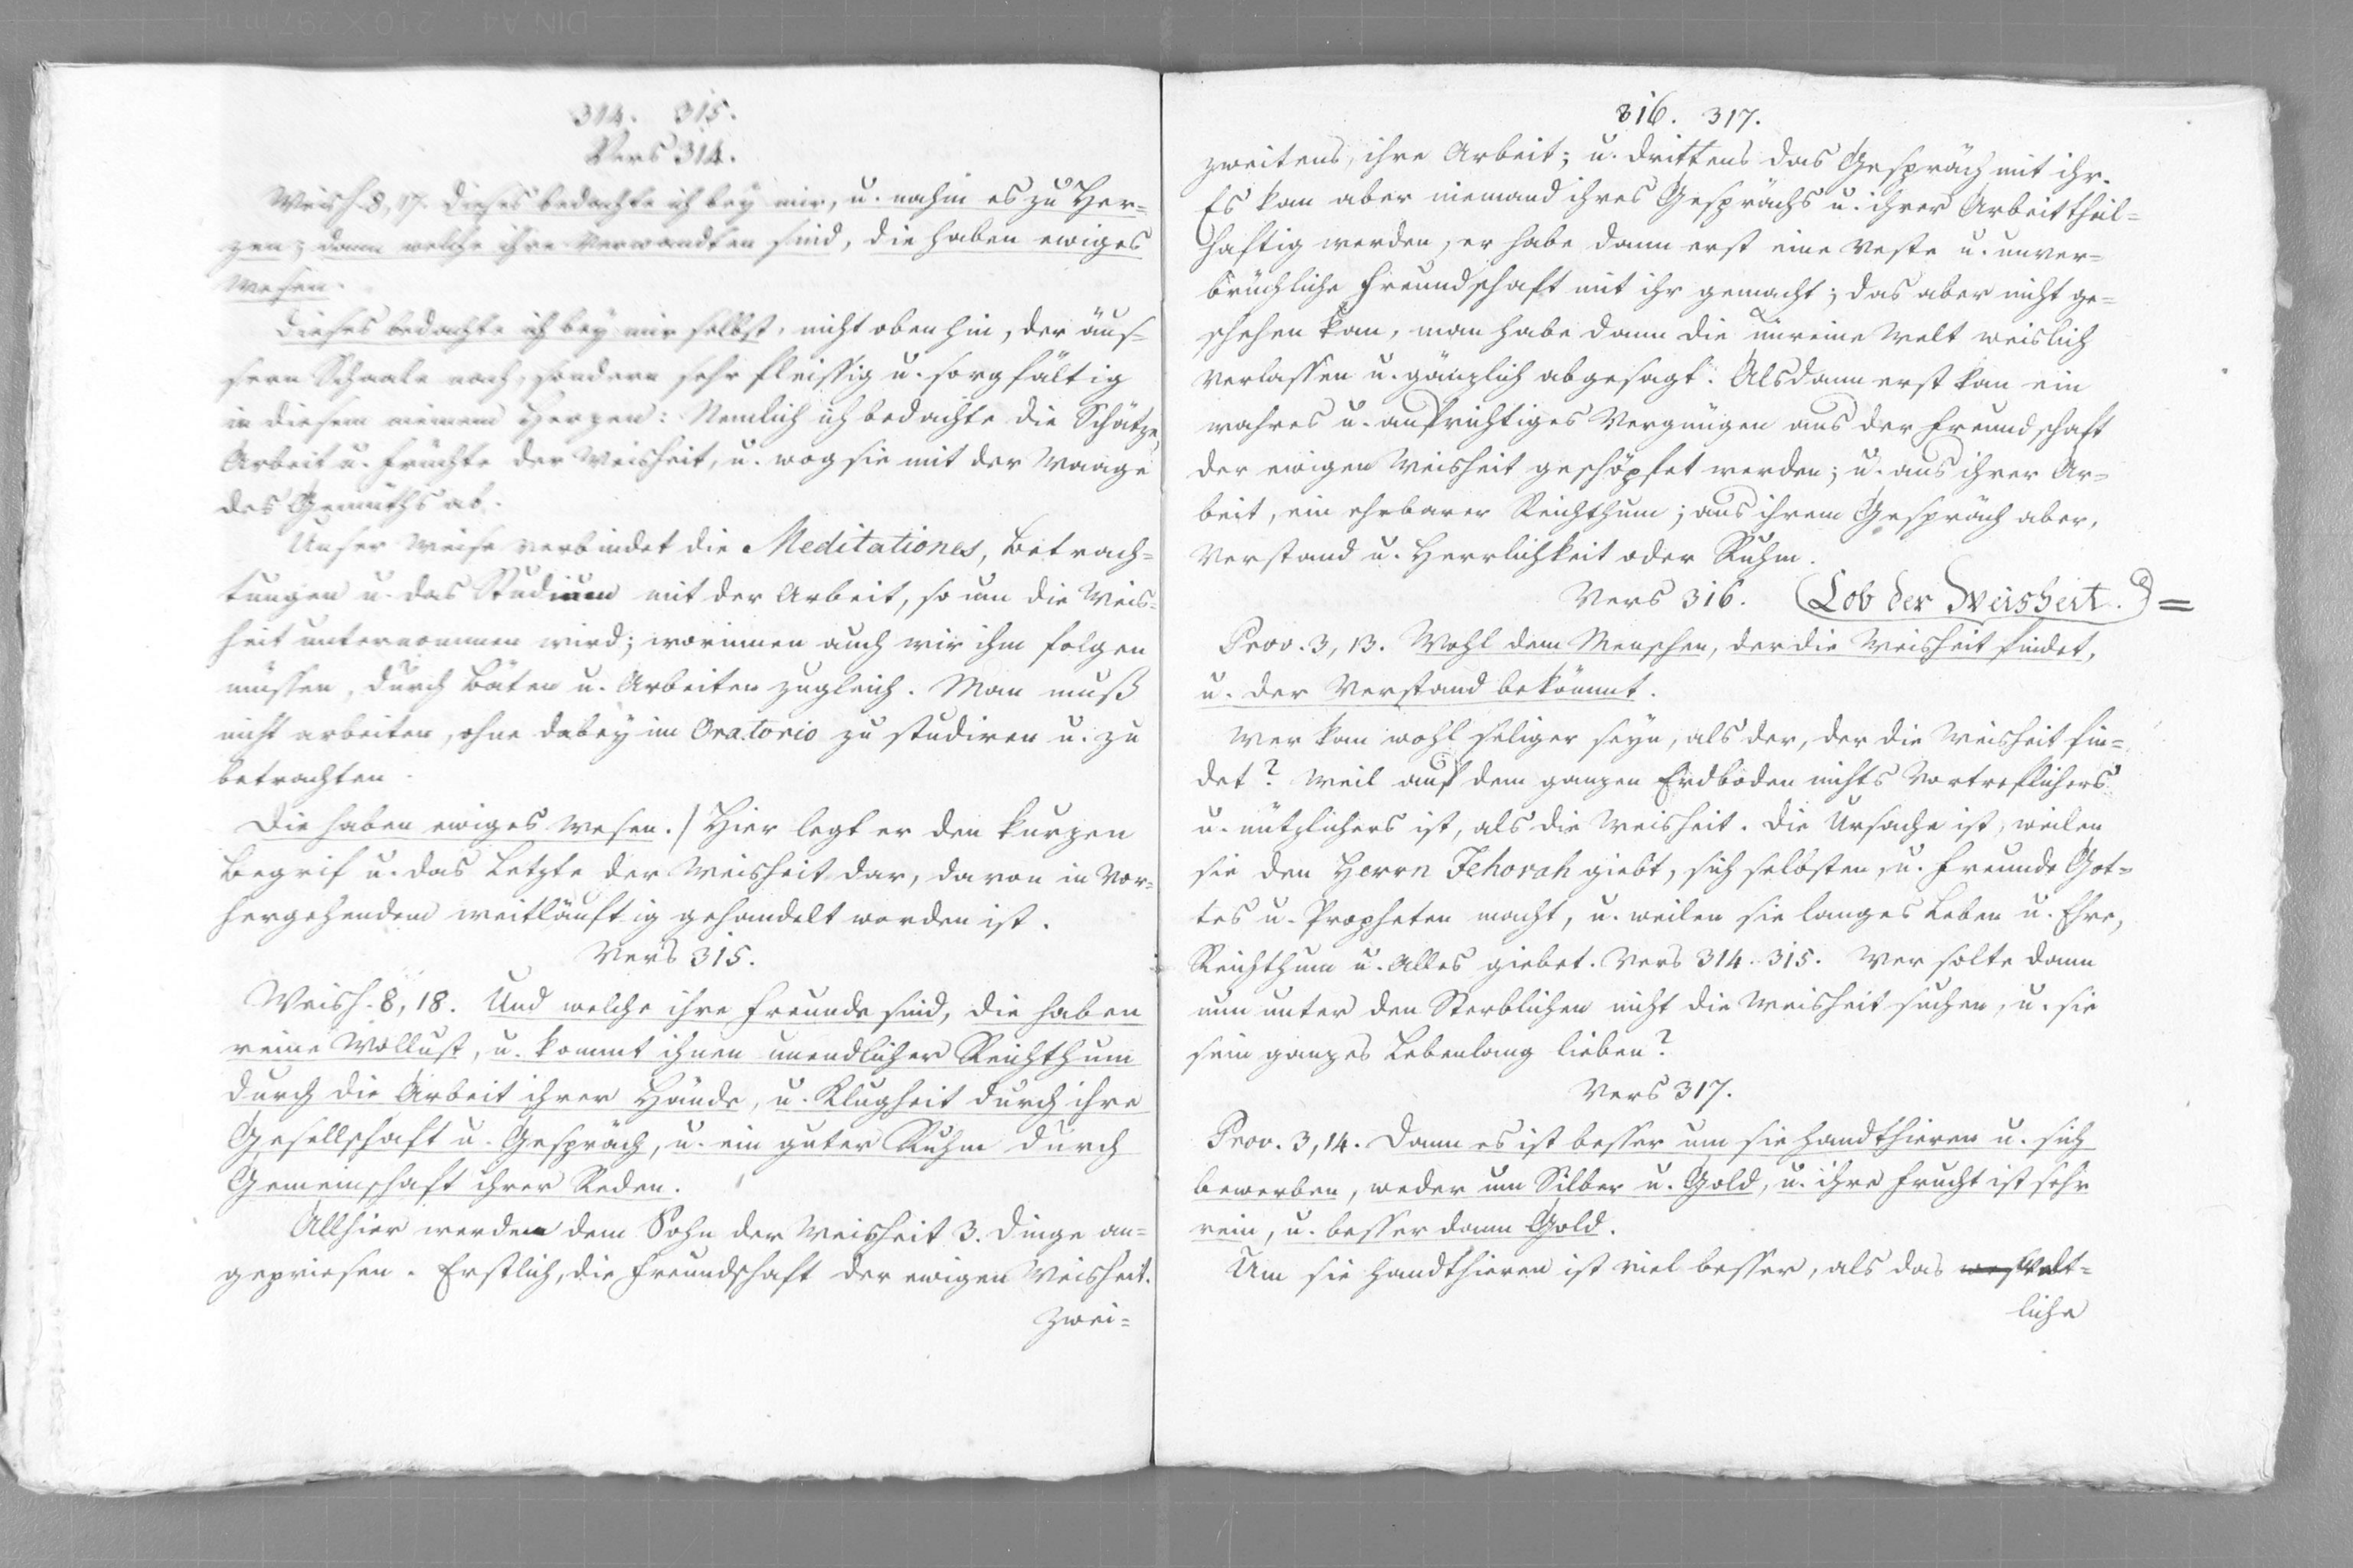 314. 315.
Vers 314.
Weish. 8, 17. Dieses bedachte ich bey mir, u. nahm es zu Her=
zen; dann welche ihre Verwandten sind, die haben ewiges
Wesen.
Dieses bedachte ich bey mir selbst, nicht obenhin, der äus=
sern Schaale nach, sondern sehr fleissig u. sorgfältig
in diesem meinem Herzen: Nemlich ich bedachte die Schätze,
Arbeit u. Früchte der Weisheit, u. wog sie mit der Waage
des Gemüths ab.
Unser Weise verbindet die Meditationes, Betrach=
tungen u. das Studium mit der Arbeit, so um die Weis=
heit unternommen wird; worinnen auch wir ihm folgen
müssen, durch Bäten u. Arbeiten zugleich. Man muß
nicht arbeiten, ohne dabey im Oratorio zu studiren u. zu
betrachten.
Die haben ewiges Wesen./ Hier legt er den kurzen
Begrif u. das Letzte der Weisheit dar, davon in Vor=
hergehendem weitläuftig gehandelt worden ist.
Vers 315.
Weish. 8, 18. Und welche ihre Freunde sind, die haben
reine Wollust, u. kommt ihnen unendlicher Reichthum
durch die Arbeit ihrer Hände, u. Klugheit durch ihre
Gesellschaft u. Gespräch, u. ein guter Ruhm durch
Gemeinschaft ihrer Reden.
Allhier werden dem Sohn der Weisheit 3. Dinge an=
gepriesen. Erstlich, die Freundschaft der ewigen Weisheit.
Zwei=
316. 317.
zweitens, ihre Arbeit; u. drittens das Gespräch mit ihr.
Es kan aber niemand ihres Gesprächs u. ihrer Arbeit theil=
haftig werden, er habe dann erst eine veste u. unver=
brüchliche Freundschaft mit ihr gemacht; das aber nicht ge=
schehen kan, man habe dann die unreine Welt weislich
verlassen u. gänzlich abgesagt. Alsdann erst kan ein
wahres u. aufrichtiges Vergnügen aus der Freundschaft
der ewigen Weisheit geschöpfet werden; u. aus ihrer Ar=
beit, ein ehrbarer Reichthum; aus ihrem Gespräch aber,
Verstand u. Herrlichkeit oder Ruhm.
Vers 316. (Lob der Weisheit.) =
Prov. 3, 13. Wohl dem Menschen, der die Weisheit findet,
u. der Verstand bekömmt.
Wer kan wohl seliger seyn, als der, der die Weisheit fin=
det? Weil auf dem ganzen Erdboden nichts Vortreflichers
u. nützlichers ist, als die Weisheit. Die Ursache ist, weilen
sie den Herrn Jehovah giebt, sich selbsten, u. Freunde Got=
tes u. Propheten macht, u. weilen sie langes Leben u. Ehre,
Reichthum u. Alles giebet. Vers 314. 315. Wer solte dann
nun unter den Sterblichen nicht die Weisheit suchen, u. sie
sein ganzes Lebenlang lieben?
Vers 317.
Prov. 3, 14. Dann es ist besser um sie handthieren u. sich
bewerben, weder um Silber u. Gold, u. ihre Frucht ist sehr
rein, u. besser dann Gold.
Um sie handthieren ist viel besser, als das Welt=
liche